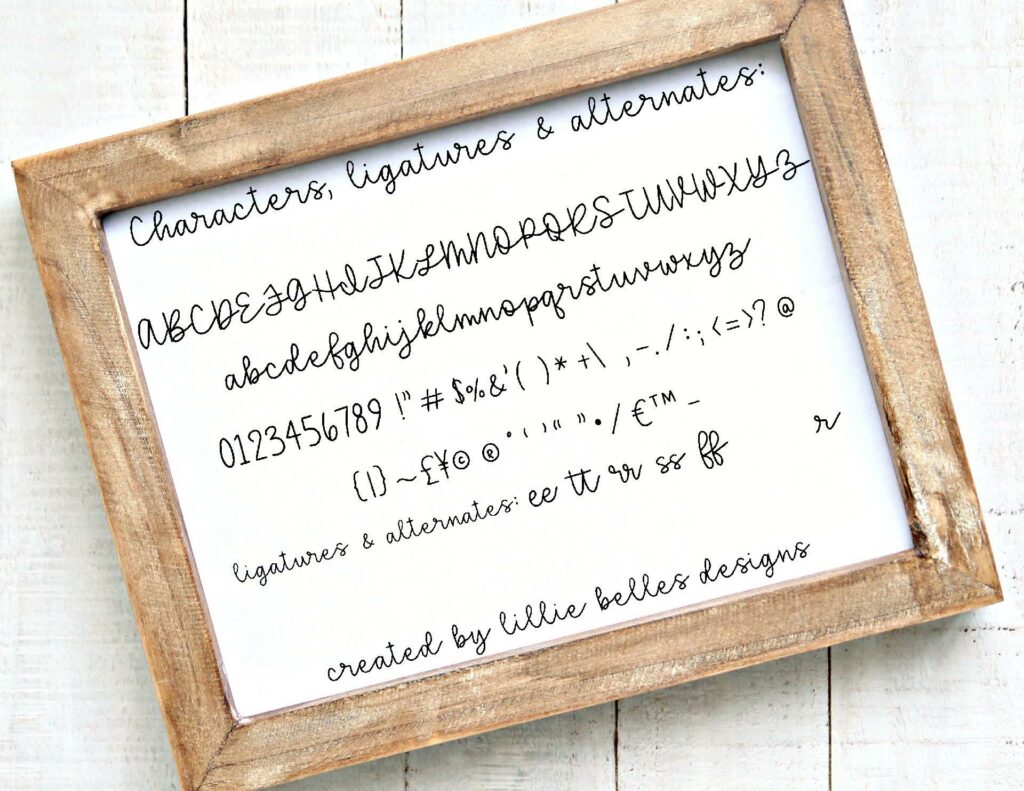 Characters, ligatures & alternates:
ABCDEFGHIJKLMNOPQRSTUVWXYZ
abcdefghijklmnopqrstuvwxyz
0123456789 !" # $%&'( )* +\ ,-./:;<=>?@
{|}~£¥©®°‘’“”•/€™–
ligatures & alternates: ee tt rr ss ff r
created by lillie belles designs